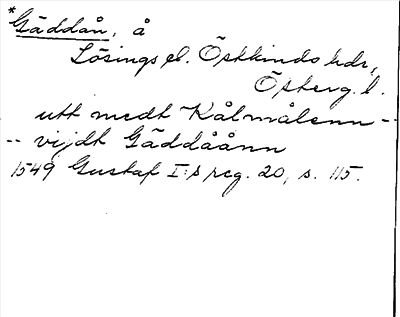 *Gäddån, å
Lösings el. Östkinds hdr,
Österg. l.
utt medt Kålmålenn --
-- vijdt Gäddåånn
1549 Gustaf I:s reg. 20, s. 115.